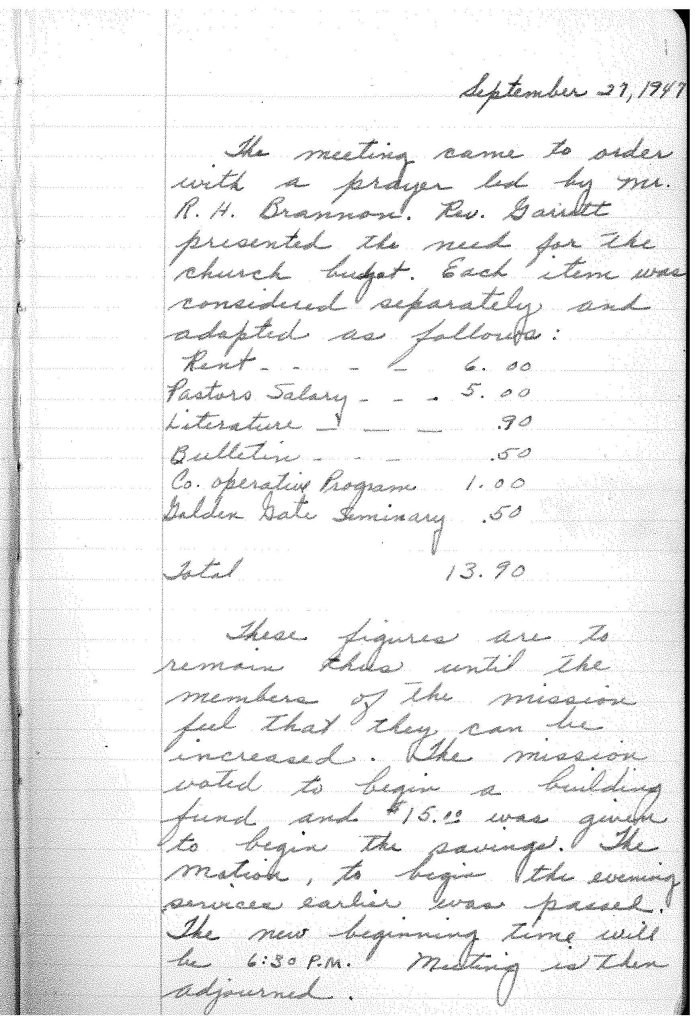 September 27, 1947
The meeting came to order
with a prayer led by Mr.
R. H. Brannon. Rev. Garrett
presented the need for the
church budget. Each item was
considered separately and
adapted as follows:
Rent - - - - 6.00
Pastors Salary - - - 5.00
Literature - - - .90
Bulletin - - - .50
Co. operative Program 1.00
Golden Gate Seminary .50
Total 13.90
These figures are to
remain thus until the
members of the mission
feel that they can be
increased. The mission
voted to begin a building
fund and $15.00 was given
to begin the savings. The
motion, to begin the evening
services earlier was passed.
The new beginning time will
be 6:30 P.M. Meeting is then
adjourned.